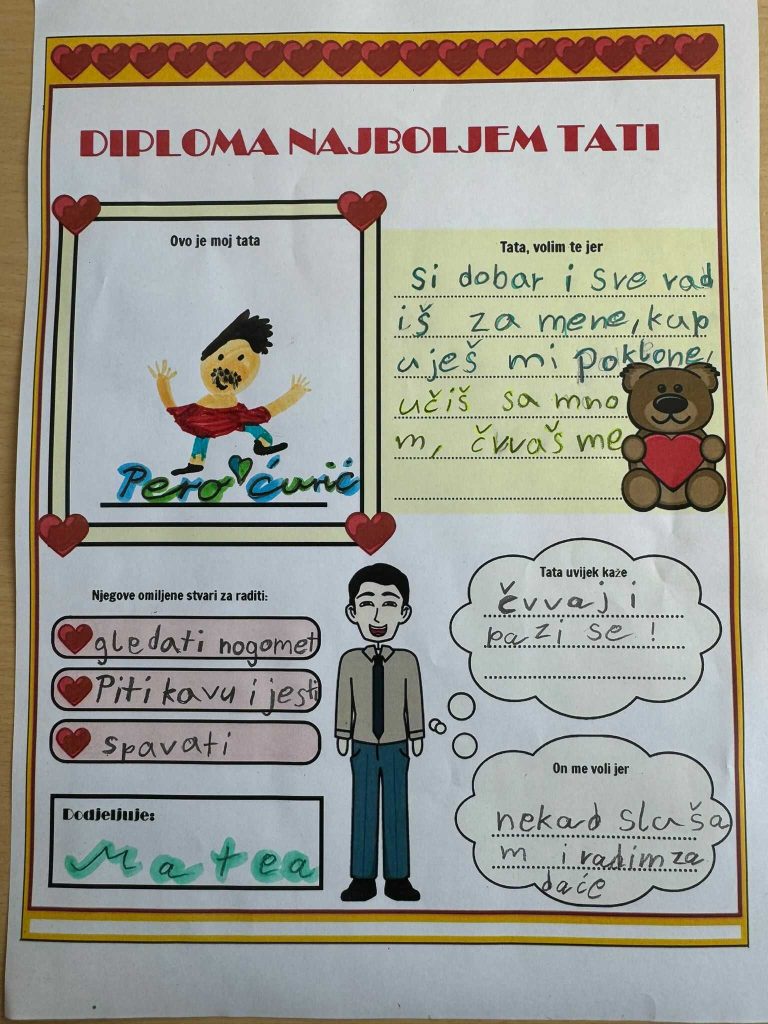 DIPLOMA NAJBOLJEM TATI
Ovo je moj tata
Pero ćurić
Tata, volim te jer
si dobar i sve rad
iš za mene, kup
uješ mi poklone,
učiš sa mno
m, čvvaš me
Njegove omiljene stvari za raditi:
gledati nogomet
Piti kavu i jesti
spavati
Tata uvijek kaže
čvvaj i
pazi se !
On me voli jer
nekad sluša
m i radim za
daće
Dodjeljuje:
Matea